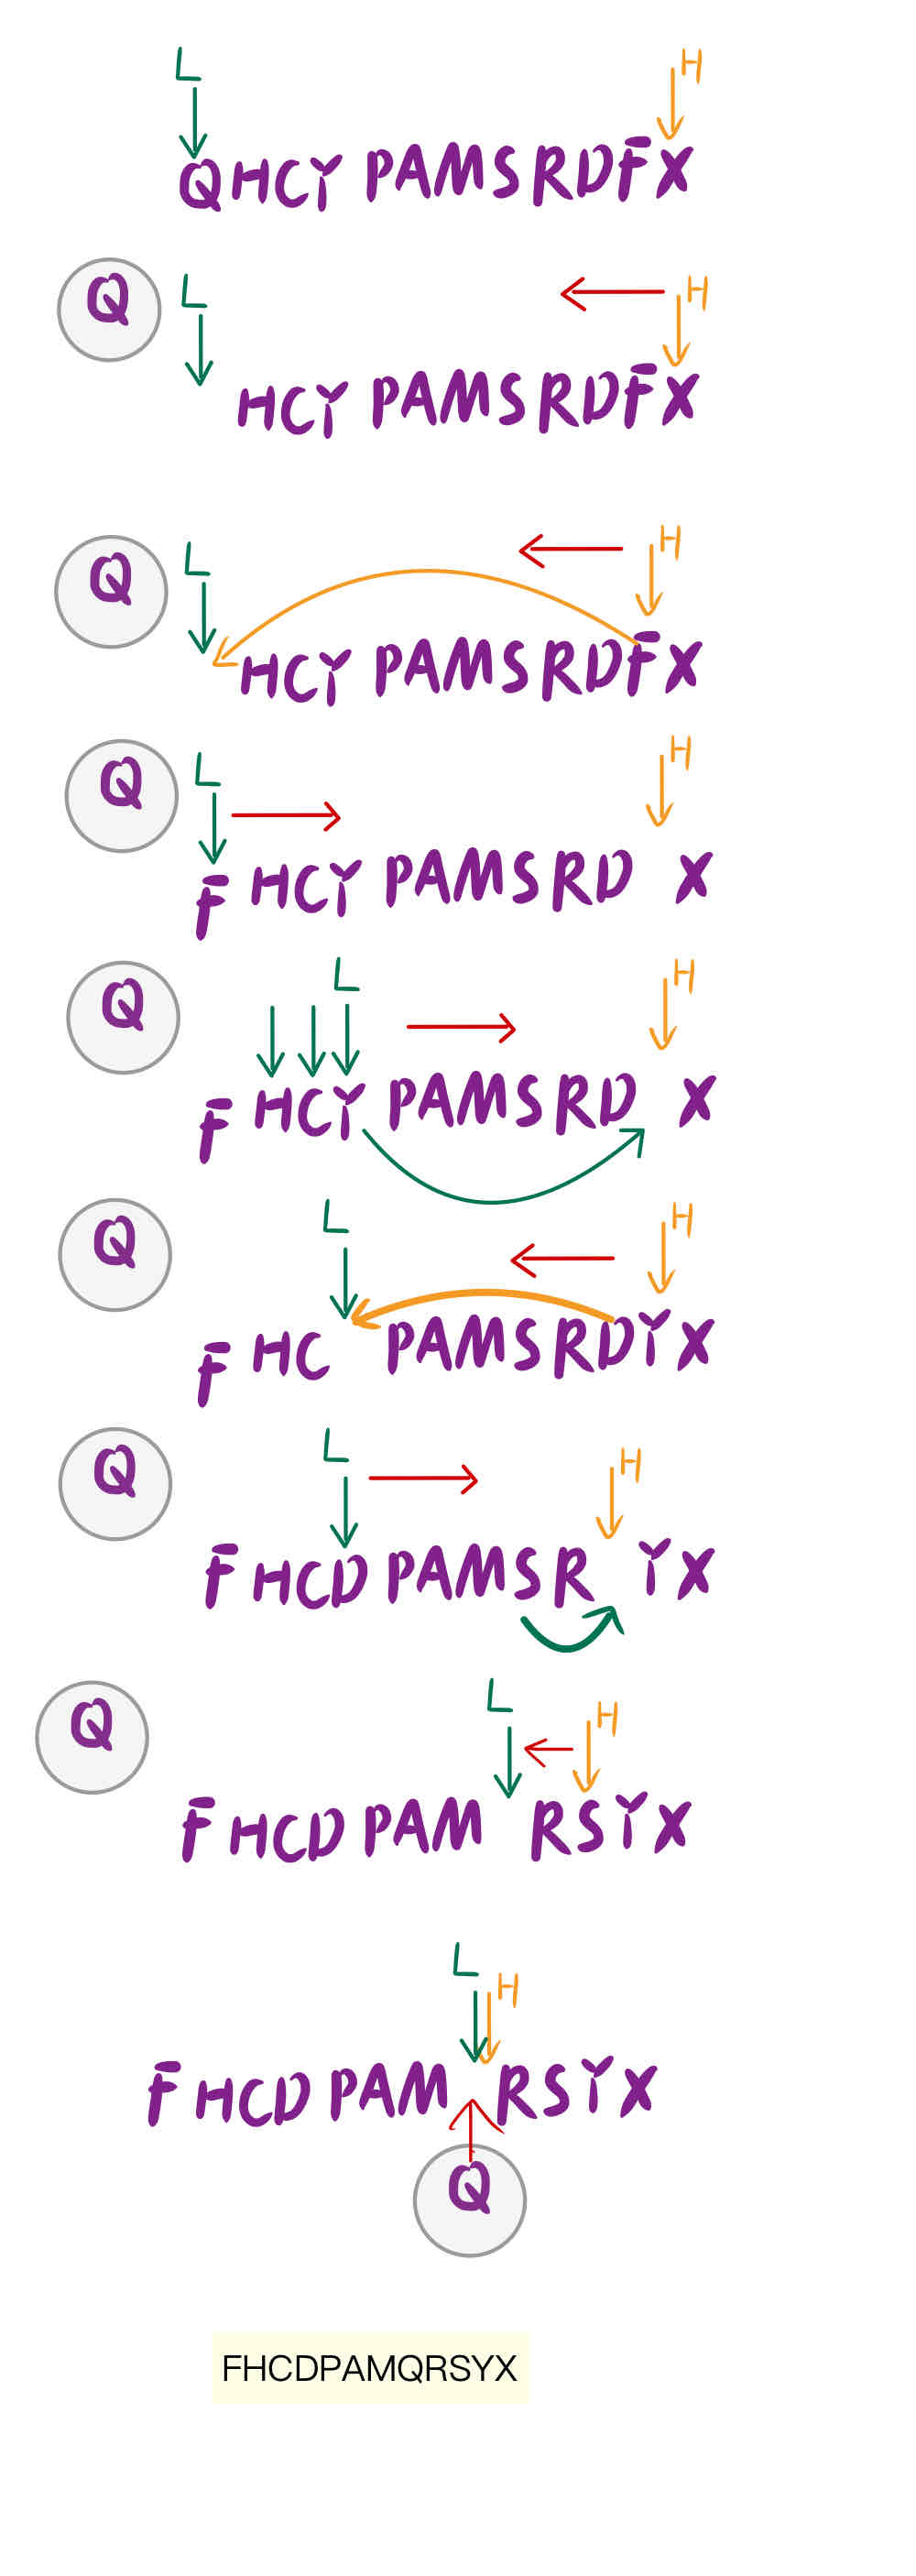 L H
QHCY PAMSRDFX
Q L H
HCY PAMSRDFX
Q L H
HCY PAMSRDFX
Q L H
F HCY PAMSRD X
Q L H
F HCY PAMSRD X
Q L H
F HC PAMSRDYX
Q L H
F HCD PAMSR YX
Q L H
F HCD PAM RSYX
L H
F HCD PAM RSYX
Q
FHCDPAMQRSYX